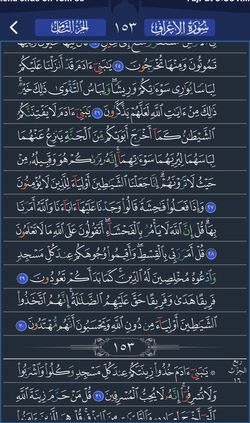 سُورَةُ الأَعْرَافِ ١٥٣ الجُزْءُ الثَّامِنُ
تَمُوتُونَ وَمِنْهَا تُخْرَجُونَ ٢٥ يَٰبَنِىٓ ءَادَمَ قَدْ أَنزَلْنَا عَلَيْكُمْ
لِبَاسًا يُوَٰرِى سَوْءَٰتِكُمْ وَرِيشًا وَلِبَاسُ ٱلتَّقْوَىٰ ذَٰلِكَ خَيْرٌ
ذَٰلِكَ مِنْ ءَايَٰتِ ٱللَّهِ لَعَلَّهُمْ يَذَّكَّرُونَ ٢٦ يَٰبَنِىٓ ءَادَمَ لَا يَفْتِنَنَّكُمُ
ٱلشَّيْطَٰنُ كَمَآ أَخْرَجَ أَبَوَيْكُم مِّنَ ٱلْجَنَّةِ يَنزِعُ عَنْهُمَا
لِبَاسَهُمَا لِيُرِيَهُمَا سَوْءَٰتِهِمَآ إِنَّهُۥ يَرَىٰكُمْ هُوَ وَقَبِيلُهُۥ مِنْ
حَيْثُ لَا تَرَوْنَهُمْ إِنَّا جَعَلْنَا ٱلشَّيَٰطِينَ أَوْلِيَآءَ لِلَّذِينَ لَا يُؤْمِنُونَ
٢٧ وَإِذَا فَعَلُوا۟ فَٰحِشَةً قَالُوا۟ وَجَدْنَا عَلَيْهَآ ءَابَآءَنَا وَٱللَّهُ أَمَرَنَا
بِهَا قُلْ إِنَّ ٱللَّهَ لَا يَأْمُرُ بِٱلْفَحْشَآءِ أَتَقُولُونَ عَلَى ٱللَّهِ مَا لَا تَعْلَمُونَ
٢٨ قُلْ أَمَرَ رَبِّى بِٱلْقِسْطِ وَأَقِيمُوا۟ وُجُوهَكُمْ عِندَ كُلِّ مَسْجِدٍ
وَٱدْعُوهُ مُخْلِصِينَ لَهُ ٱلدِّينَ كَمَا بَدَأَكُمْ تَعُودُونَ ٢٩
فَرِيقًا هَدَىٰ وَفَرِيقًا حَقَّ عَلَيْهِمُ ٱلضَّلَٰلَةُ إِنَّهُمُ ٱتَّخَذُوا۟
ٱلشَّيَٰطِينَ أَوْلِيَآءَ مِن دُونِ ٱللَّهِ وَيَحْسَبُونَ أَنَّهُم مُّهْتَدُونَ ٣٠
١٥٣
ربع الحزب ١٦
۞ يَٰبَنِىٓ ءَادَمَ خُذُوا۟ زِينَتَكُمْ عِندَ كُلِّ مَسْجِدٍ وَكُلُوا۟ وَٱشْرَبُوا۟
وَلَا تُسْرِفُوٓا۟ إِنَّهُۥ لَا يُحِبُّ ٱلْمُسْرِفِينَ ٣١ قُلْ مَنْ حَرَّمَ زِينَةَ ٱللَّهِ